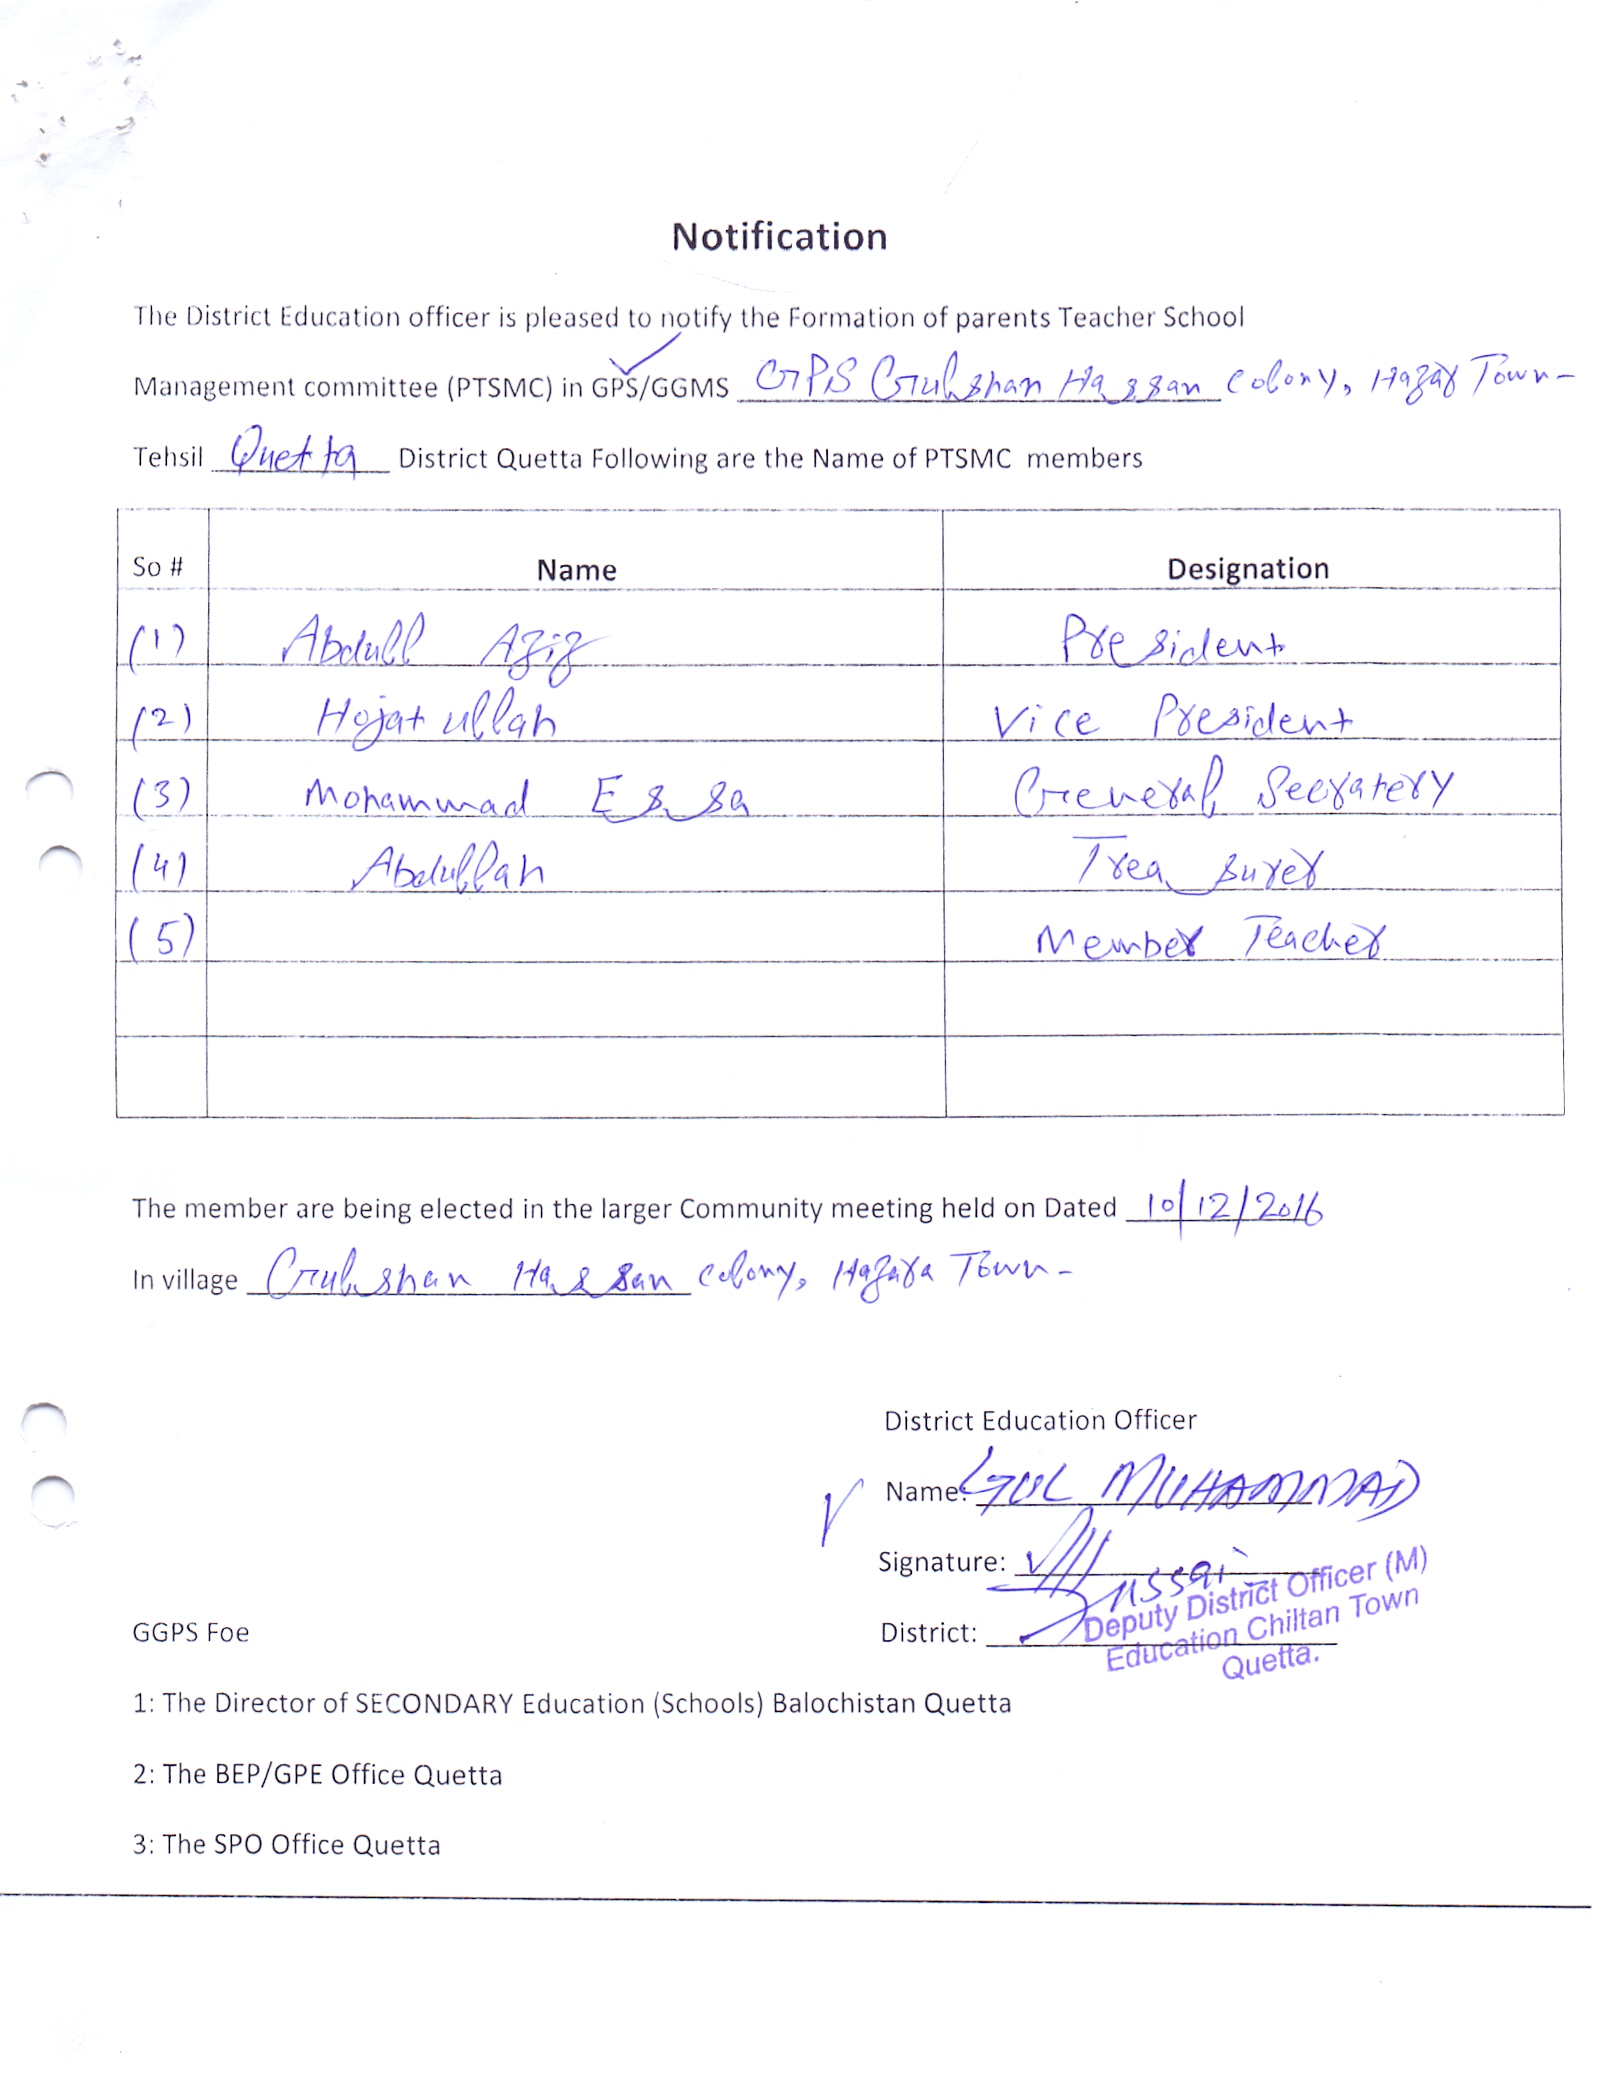 Notification
The District Education officer is pleased to notify the Formation of parents Teacher School
Management committee (PTSMC) in GPS/GGMS GPS Gulshan Hassan Colony, Hazar Town-
Tehsil Quetta District Quetta Following are the Name of PTSMC members
So # Name Designation
(1) Abdull Aziz President
(2) Hojat ullah Vice President
(3) Mohammad Essa General Secratery
(4) Abdullah Treasurer
(5) Member Teacher
The member are being elected in the larger Community meeting held on Dated 10/12/2016
In village Gulshan Hassan Colony, Hazara Town-
District Education Officer
Name: GUL MUHAMMAD
Signature:
Deputy District Officer (M)
Education Chiltan Town
Quetta.
GGPS Foe District:
1: The Director of SECONDARY Education (Schools) Balochistan Quetta
2: The BEP/GPE Office Quetta
3: The SPO Office Quetta